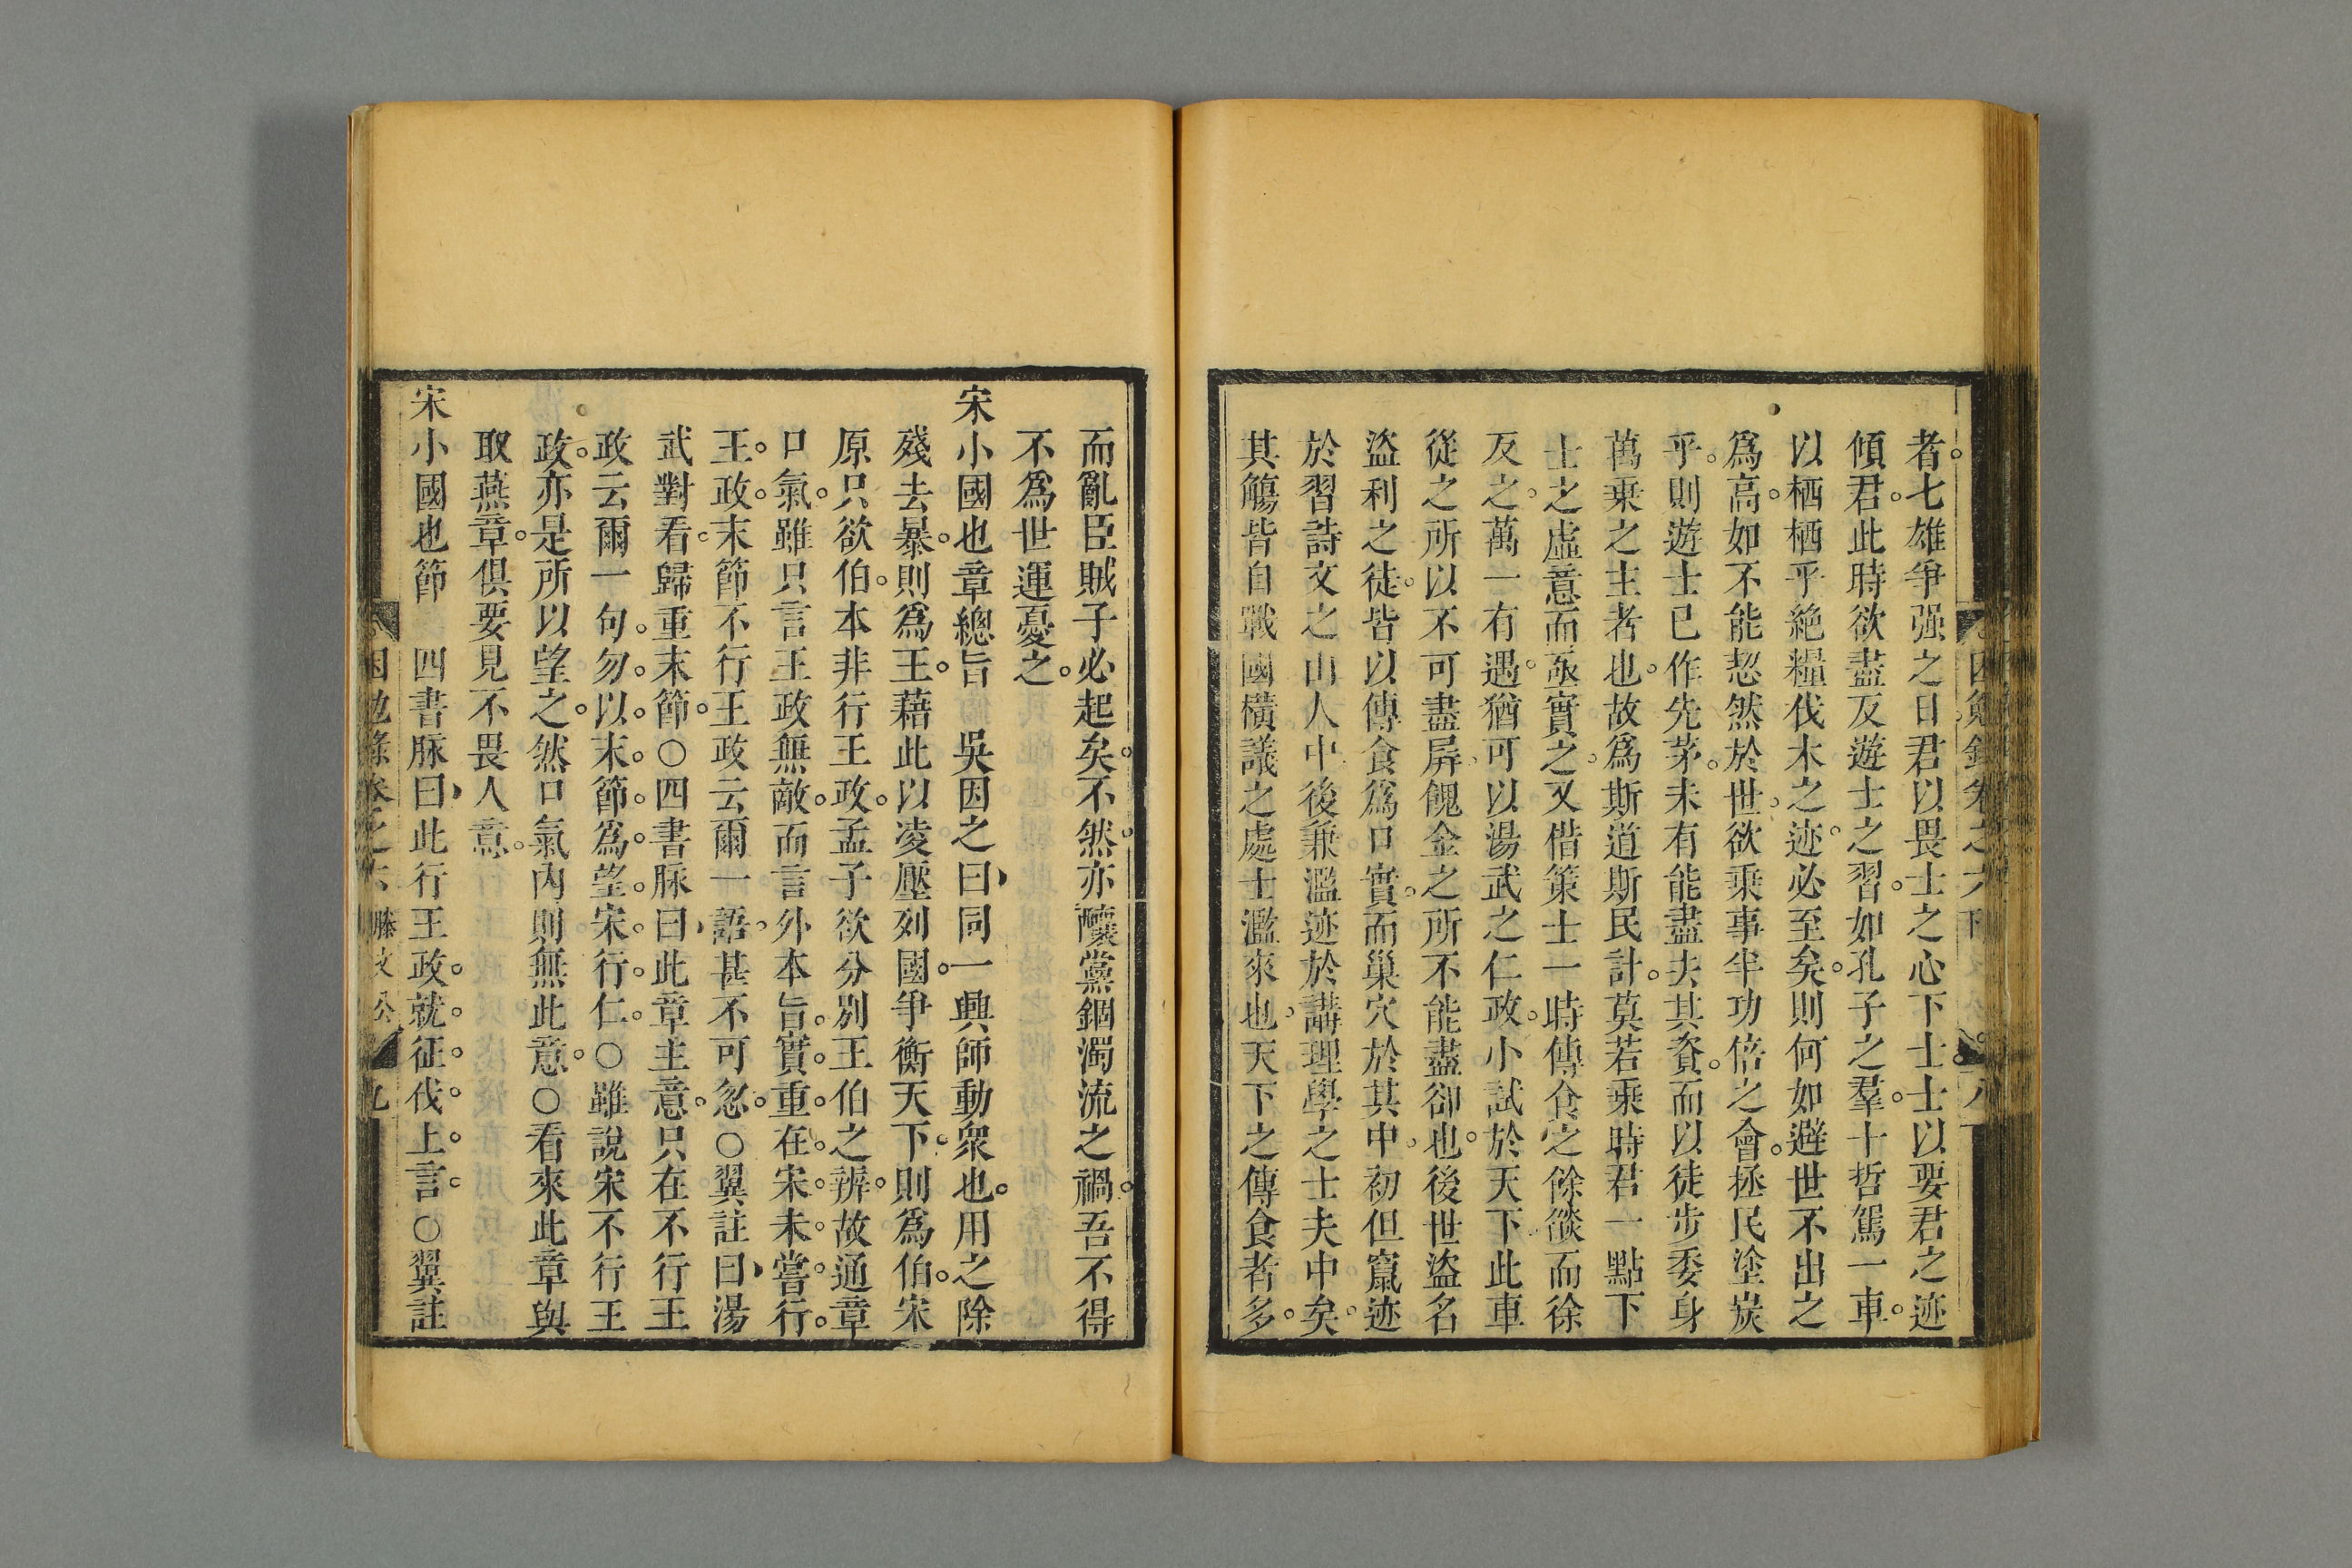 者七雄爭强之日君以畏士之心下士士以要君之迹
傾君此時欲盡反遊士之習如孔子之羣十哲駕一車
以栖栖乎絶糧伐木之迹必至矣則何如避世不出之
爲高如不能恝然於世欲乘事半功倍之會拯民塗炭
乎則遊士已作先茅未有能盡夫其資而以徒步委身
萬乘之主者也故爲斯道斯民計莫若乘時君一點下
士之虛意而亟實之又借策士一時傳食之餘燄而徐
反之萬一有遇猶可以湯武之仁政小試於天下此車
從之所以不可盡屏餽金之所不能盡卻也後世盜名
盜利之徒皆以傳食爲口實而巢穴於其中初但竄迹
於習詩文之山人中後兼濫迹於講理學之士夫中矣
其觴皆自戰國橫議之處士濫來也天下之傳食者多
而亂臣賊子必起矣不然亦釀黨錮濁流之禍吾不得
不爲世運憂之
宋小國也章總旨 吳因之曰同一興師動衆也用之除
殘去暴則爲王藉此以凌壓列國爭衡天下則爲伯宋
原只欲伯本非行王政孟子欲分別王伯之辨故通章
口氣雖只言王政無敵而言外本旨實重在宋未嘗行
王政末節不行王政云爾一語甚不可忽○翼註曰湯
武對看歸重末節○四書脉曰此章主意只在不行王
政云爾一句勿以末節爲望宋行仁○雖說宋不行王
政亦是所以望之然口氣內則無此意○看來此章與
取燕章俱要見不畏人意
宋小國也節 四書脉曰此行王政就征伐上言○翼註
困勉錄卷之六 滕文公 九